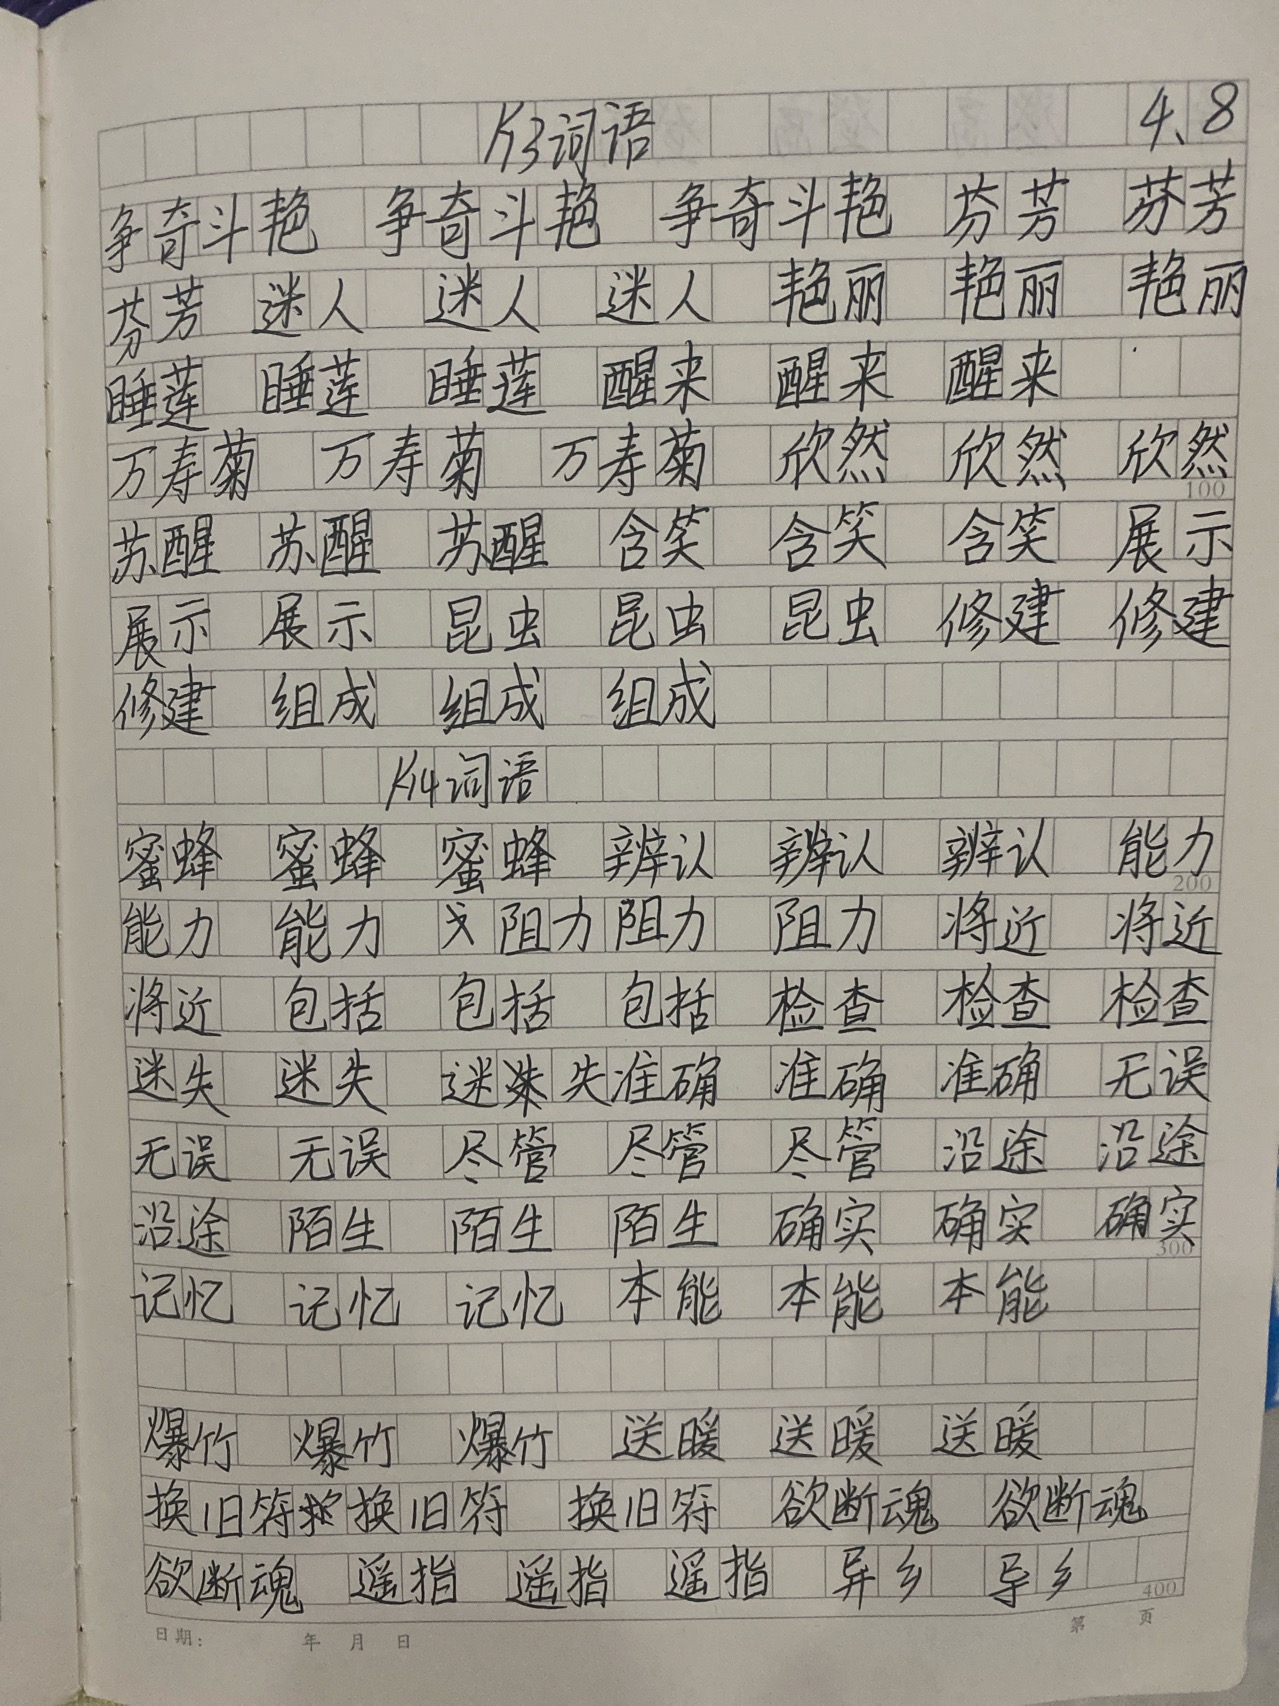 K13词语 4、8
争奇斗艳 争奇斗艳 争奇斗艳 芬芳 芬芳
芬芳 迷人 迷人 迷人 艳丽 艳丽 艳丽
睡莲 睡莲 睡莲 醒来 醒来 醒来
万寿菊 万寿菊 万寿菊 欣然 欣然 欣然
100
苏醒 苏醒 苏醒 含笑 含笑 含笑 展示
展示 展示 昆虫 昆虫 昆虫 修建 修建
修建 组成 组成 组成
K14词语
蜜蜂 蜜蜂 蜜蜂 辨认 辨认 辨认 能力
200
能力 能力 阻力 阻力 阻力 将近 将近
将近 包括 包括 包括 检查 检查 检查
迷失 迷失 迷失 准确 准确 准确 无误
无误 无误 尽管 尽管 尽管 沿途 沿途
沿途 陌生 陌生 陌生 确实 确实 确实
300
记忆 记忆 记忆 本能 本能 本能
爆竹 爆竹 爆竹 送暖 送暖 送暖
换旧符 换旧符 换旧符 欲断魂 欲断魂
欲断魂 遥指 遥指 遥指 异乡 异乡
400
日期: 年 月 日 第 页